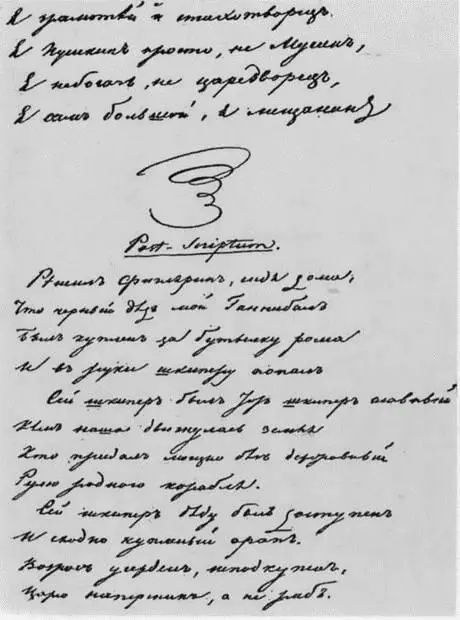 Я грамотѣй и стихотворецъ.
Я Пушкинъ просто, не Мусинъ,
Я не богачь, не царедворецъ,
Я самъ большой, я мещанинъ
Post-Scriptum.
Рѣшилъ Фигляринъ, сидя дома,
Что черный дѣдъ мой Ганнибалъ
Былъ купленъ за бутылку рома
И въ руки шкиперу попалъ
Сей шкиперъ былъ шкиперъ славный
Кѣмъ наша двигнулась земля
Кто придалъ мощно бѣгъ державный
Рулю родного корабля.
Сей шкиперъ дѣду былъ доступенъ
И сходно купленный арапъ.
Возросъ усерденъ, неподкупенъ,
Царю наперсникъ, а не рабъ.